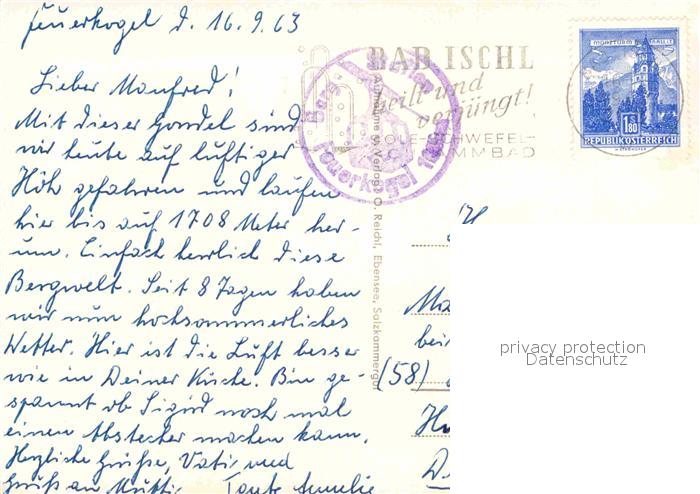 Feuerkogel d. 16.9.63
Lieber Manfred!
Mit dieser Gondel sind
wir heute auf luftiger
Höh gefahren und laufen
hier bis auf 1708 Meter her-
um. Einfach herrlich diese
Bergwelt. Seit 8 Tagen haben
wir nun hochsommerliches
Wetter. Hier ist die Luft besser
wie in Deiner Küche. Bin ge-
spannt ob Sigrid noch mal
einen Abstecher machen kann.
Herzliche Grüße, Vati und
Gruß an Mutti. Tante Amelie
BAD ISCHL
heilt und
verjüngt!
SOLE-SCHWEFEL-
Feuerkogel
Aufnahme u. Verlag C. Reichl, Ebensee, Salzkammergut
MÜNZTURM HALL I.T.
1.80
REPUBLIK ÖSTERREICH
(58)
privacy protection
Datenschutz